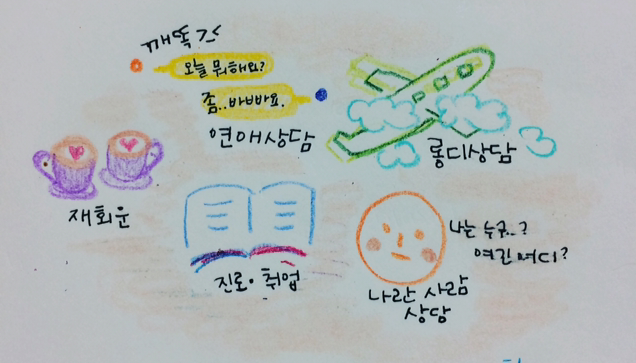 깨똑
오늘 뭐해요?
좀..바빠요.
연애상담
롱디상담
재회운
진로·취업
나는 누구..?
여긴 어디?
나란 사람
상담